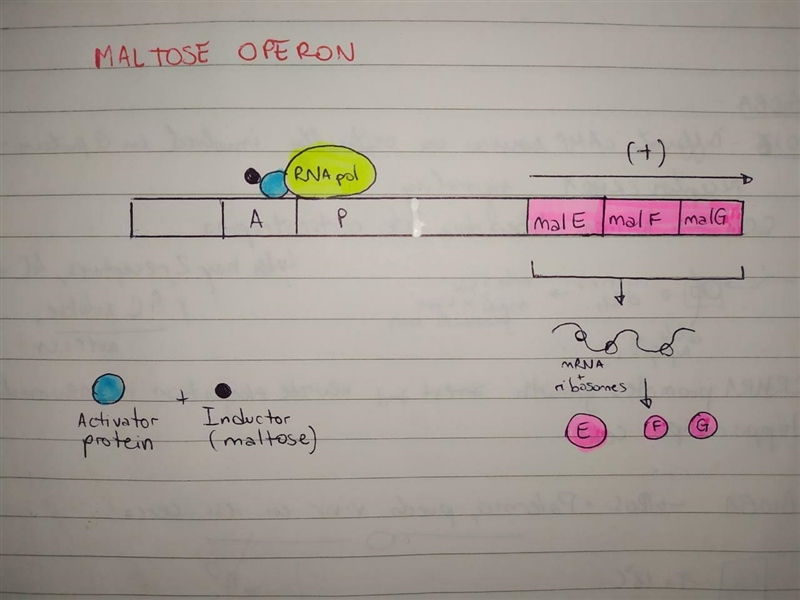 MALTOSE OPERON
(+)
RNA pol
A P malE malF malG
mRNA
+
ribosomes
Activator
protein
+
Inductor
(maltose)
E F G